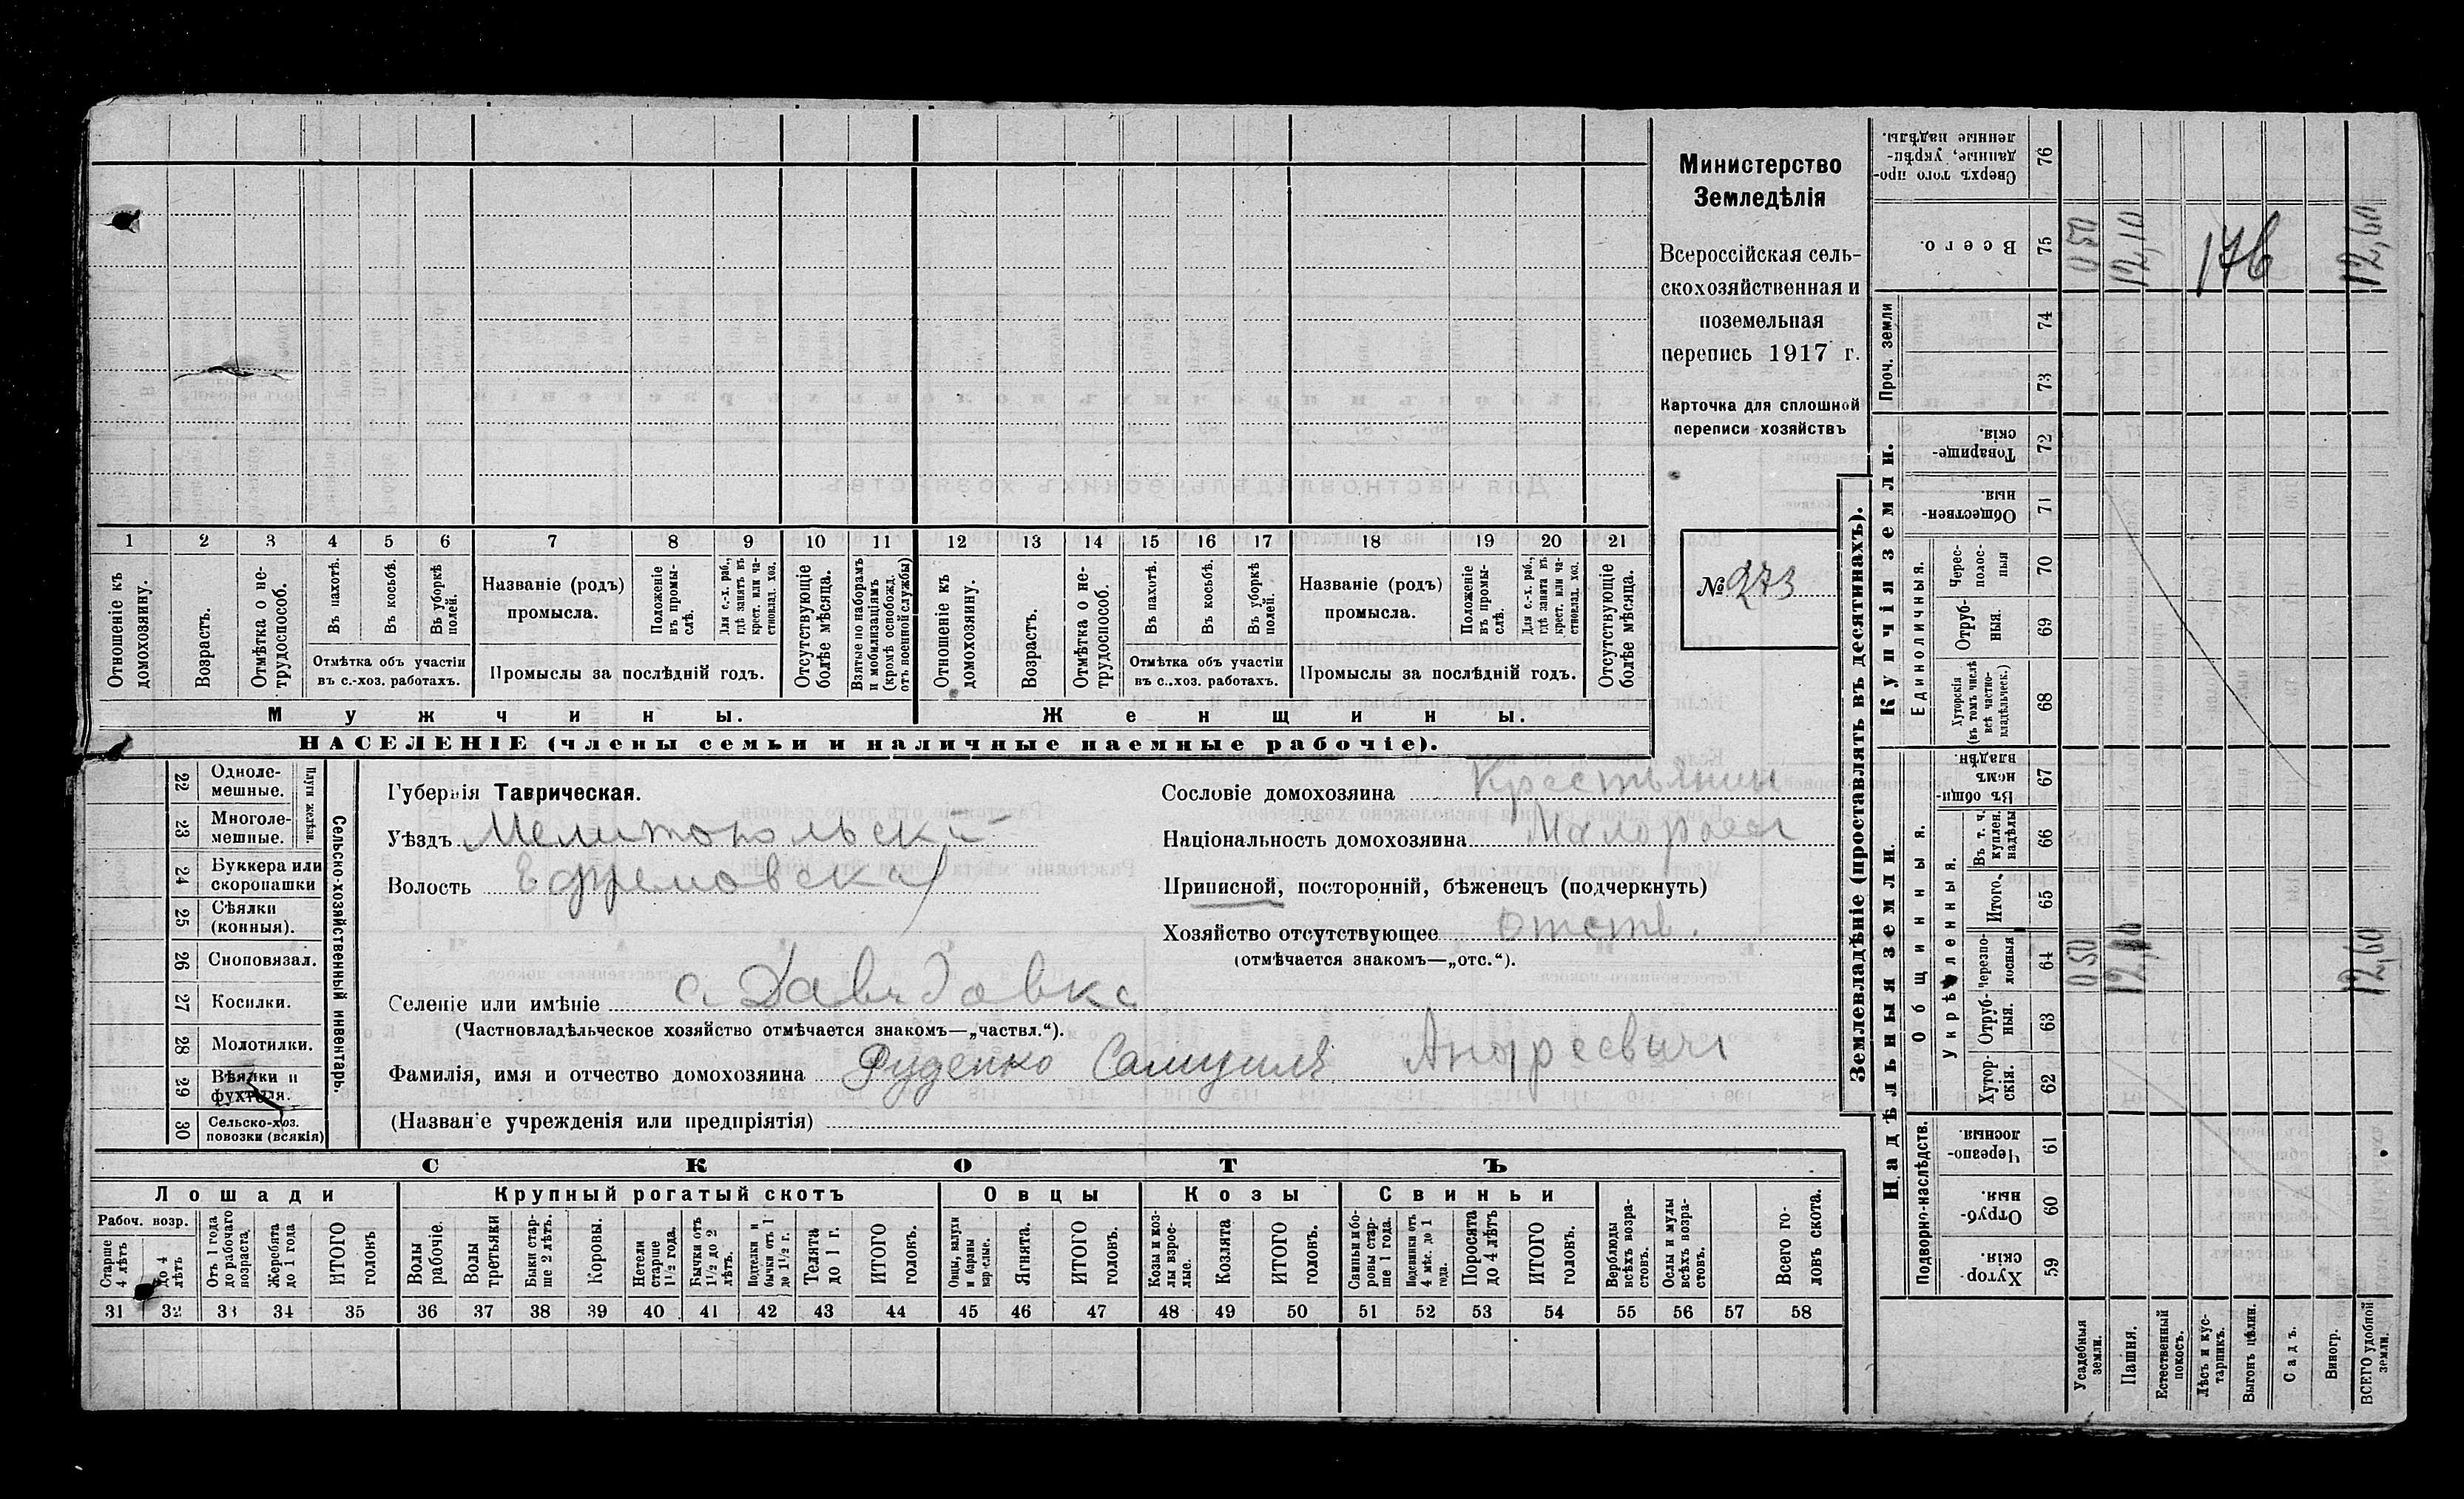 Министерство
Земледѣлія
Всероссійская сель-
скохозяйственная и
поземельная
перепись 1917 г.
Карточка для сплошной
переписи хозяйствъ
№ 273
1 2 3 4 5 6 7 8 9 10 11 12 13 14 15 16 17 18 19 20 21
Отношеніе къ домохозяину.
Возрастъ.
Отмѣтка о не-трудоспособ.
Въ пахотѣ.
Въ косьбѣ.
Въ уборкѣ полей.
Отмѣтка объ участіи
въ с.-хоз. работахъ.
Названіе (родъ)
промысла.
Положеніе въ промы-слѣ.
Для с.-х. раб., гдѣ занятъ въ крест. или ча-стновлад. хоз.
Промыслы за послѣдній годъ.
Отсутствующіе болѣе мѣсяца.
Взятые по наборамъ и мобилизаціямъ (кромѣ освобожд. отъ военной службы)
Отношеніе къ домохозяину.
Возрастъ.
Отмѣтка о не-трудоспособ.
Въ пахотѣ.
Въ косьбѣ.
Въ уборкѣ полей.
Отмѣтка объ участіи
въ с.-хоз. работахъ.
Названіе (родъ)
промысла.
Положеніе въ промы-слѣ.
Для с.-х. раб., гдѣ занятъ въ крест. или ча-стновлад. хоз.
Промыслы за послѣдній годъ.
Отсутствующіе болѣе мѣсяца.
Мужчины.
Женщины.
НАСЕЛЕНІЕ (члены семьи и наличные наемные рабочіе).
Сельско-хозяйственный инвентарь.
Плуги желѣзн.
22 Одноле-мешные.
23 Многоле-мешные.
24 Буккера или скоропашки
25 Сѣялки (конныя).
26 Сноповязал.
27 Косилки.
28 Молотилки.
29 Вѣялки и фухтеля.
30 Сельско-хоз. повозки (всякія)
Губернія Таврическая.
Уѣздъ Мелитопольскій
Волость Ефремовская
Селеніе или имѣніе с. Давыдовка
(Частновладѣльческое хозяйство отмѣчается знакомъ—„частвл.“).
Фамилія, имя и отчество домохозяина Руденко Самуилъ Андреевич
(Названіе учрежденія или предпріятія)
Сословіе домохозяина Крестьянин
Національность домохозяина Малоросс
Приписной, посторонній, бѣженецъ (подчеркнуть)
Хозяйство отсутствующее отств.
(отмѣчается знакомъ—„отс.“).
СКОТЪ
Лошади
Крупный рогатый скотъ
Овцы
Козы
Свиньи
Рабоч. возр.
Старше 4 лѣтъ
до 4 лѣтъ
Отъ 1 года до рабочаго возраста
Жеребята до 1 года
ИТОГО головъ
Волы рабочіе.
Волы третьяки
Быки стар-ше 2 лѣтъ.
Коровы.
Нетели старше 1½ года.
Бычки отъ 1½ до 2 лѣтъ.
Подтелки и бычки отъ 1 до 1½ г.
Телята до 1 г.
ИТОГО головъ.
Овцы, валухи и бараны взрослые.
Ягнята.
ИТОГО головъ.
Козы и коз-лы взрос-лые.
Козлята
ИТОГО головъ.
Свиньи и бо-ровы стар-ше 1 года.
Подсвинки отъ 4 мѣс. до 1 года.
Поросята до 4 лѣтъ
ИТОГО головъ.
Верблюды всѣхъ возра-стовъ.
Ослы и мулы всѣхъ возра-стовъ.
Всего го-ловъ скота.
31 32 33 34 35 36 37 38 39 40 41 42 43 44 45 46 47 48 49 50 51 52 53 54 55 56 57 58
Землевладѣніе (проставлять въ десятинахъ).
Надѣльныя земли.
Купчія земли.
Проч. земли
Подворно-наслѣдств.
Общинныя.
Укрѣпленныя.
Единоличныя.
Хутор-скія. 59
Отруб-ныя. 60
Черезпо-лосныя. 61
Хутор-скія. 62
Отруб-ныя. 63
Черезпо-лосныя 64
Итого. 65
Въ т. ч. куплен. надѣлы 66
Въ общин-номъ владѣн. 67
Хуторскія (въ томъ числѣ всѣ частно-владѣльческ.) 68
Отруб-ныя. 69
Черес-полос-ныя 70
Обществен-ныя. 71
Товарище-скія. 72
73
74
Всего. 75
Сверхъ того про-данные, укрѣп-ленные надѣлы. 76
Усадебныя земли. 0 50 0 50
Пашня. 12,10 12,10
Естественный покосъ.
Лѣсъ и кус-тарникъ.
Выгонъ цѣлин.
Садъ.
Виногр.
ВСЕГО удобной земли. 12,60 12,60
176